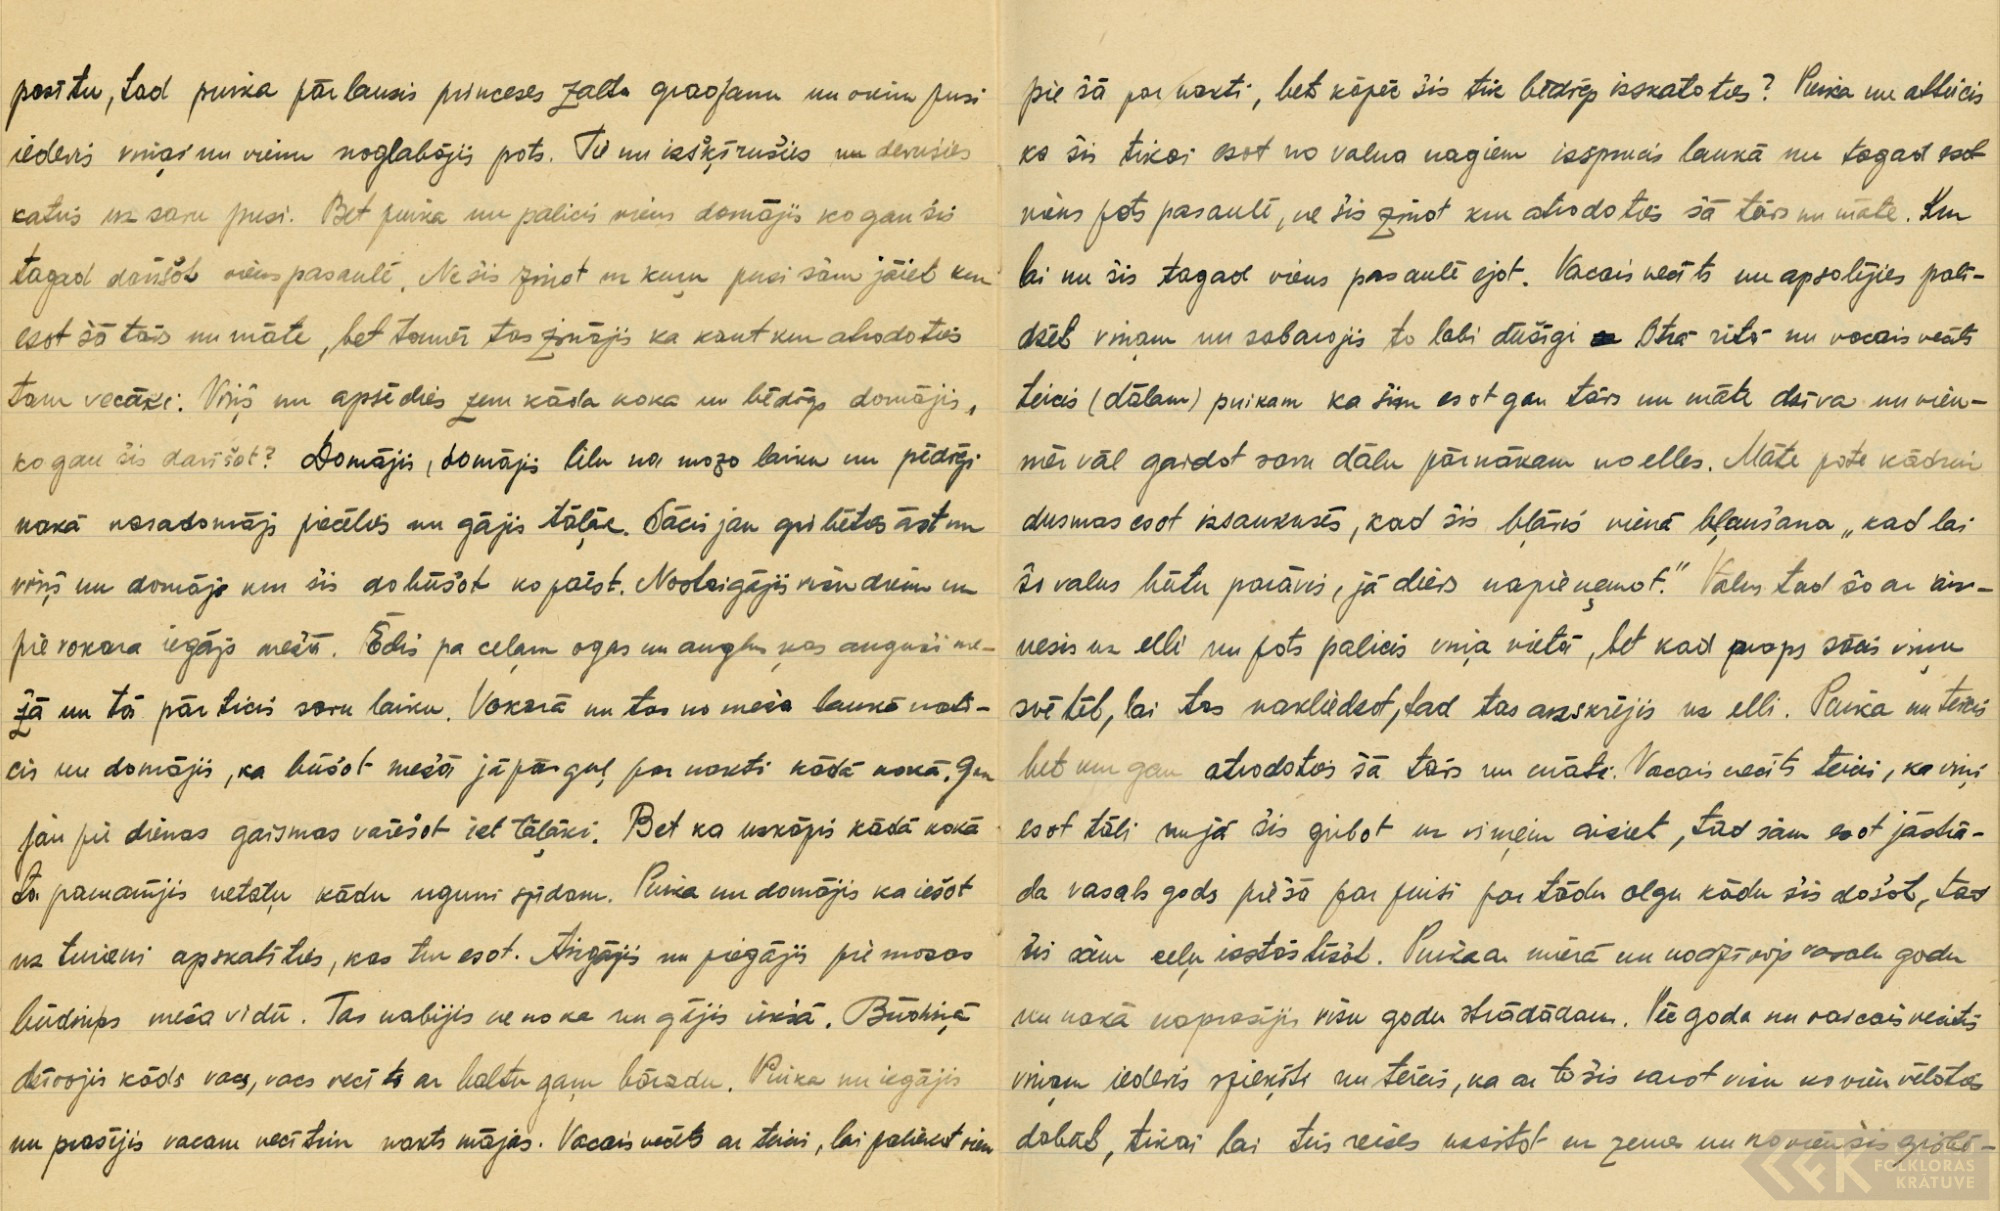 pasītu, tad puika pārlausis princeses zalta gradzanu un vienu pusi
iedevis viņai nu vienu noglabājis pats. Tie nu izšķīrušies un devušies
katris uz savu pusi. Bet puika nu palicis viens domājis ko gan šis
tagad darīšot viens pasaulē. Ne šis zinot uz kuŗu pusi šām jāiet kur
esot šā tāis un māte, bet tomēr tas zinājis ka kaut kur atrodoties
tam vecāki. Viņš nu apsēdies zem kāda koka un bēdīgs domājis,
ko gan šis darīšot? Domājis, domājis lilu na mazo laiku un pēdīgi
nakā nasadomājs piecēlies un gājis tāļāk. Sācis jau gribēties āst un
viņš nu domājs kur šis dabūšot ko pāēst. Nostaigājis visu dienu un
pie vakara iegājs mežā. Ēdis pa ceļam ogas un augļus kas auguši me-
žā un tā pārticis savu laiku. Vakarā nu tas no meža laukā nati-
cis un domājis, ka būšot mežā jāpārguļ par nakti kādā kokā. Gan
jau pie dienas gaismas varēšot iet tāļāki. Bet ka uzkāpis kādā kokā
tā pamanījis netāļu kādu uguni spīdam. Puika nu domājis ka iešot
uz turieni apskatīties, kas tur esot. Aizgājis nu piegājis pie mazas
būdiņas meža vidū. Tas nabijis ne no ka nu gājis iekšā. Būdiņā
dzīvojis kāds vacs, vacs vecīts ar baltu gaŗu bārzdu. Puika nu iegājis
nu prasījis vacam vecītim nakts mājas. Vacais vecīts ar teicis, lai paliekot vien
pie šā par nakti, bet kāpēc šis tik bēdīgs izskatoties? Puika nu atteicis
ka šis tikai esot no valna nagiem izsprucis laukā nu tagad esot
viens pats pasaulē, ne šis zinot kur atrodoties šā tāis nu māte. Kur
lai nu šis tagad viens pasaulē ejot. Vacais vecīts nu apsolījies palī-
dzēt viņam nu sabarojis to labi dūšīgi Otrā rītā nu vacais vecīts
teicis (dālam) puikam ka šim esot gan tāis un māte dzīva nu vien-
mēr vāl gaidot savu dālu pārnākam no elles. Māte pate kādreiz
dusmas esot izsaukusēs, kad šis bļāvis vienā bļaušana „kad lai
šo valns būtu parāvis, jā dievs napieņemot." Valns tad šo ar aiz-
nesis uz elli nu pats palicis viņa vietā, bet kad paps sācis viņu
svētēt, lai tas nakliedzot, tad tas aizskrējis uz elli. Puika nu teicis
bet kur gan atrodoties šā tāis un māte. Vacais vecīts teicis, ka viņi
esot tāli nu jā šis gribot uz viņiem aiziet, tad šām esot jāstrā-
dā vasals gads pie šā par puisi par tādu algu kādu šis došot, tad
šis šām ceļu izstāstīšot. Puika ar mierā un nodzīvojs vasalu gadu
nu nakā naprasījis visu gadu strādādams. Pēc gada nu vacais vecīts
viņam iedevis spieķīti nu teicis, ka ar to šis varot visu ko vien vēloties
dabūt, tikai lai trīs reizes uzsitot uz zemes nu ko vien šis gribē-
FOLKLORAS
KRĀTUVE